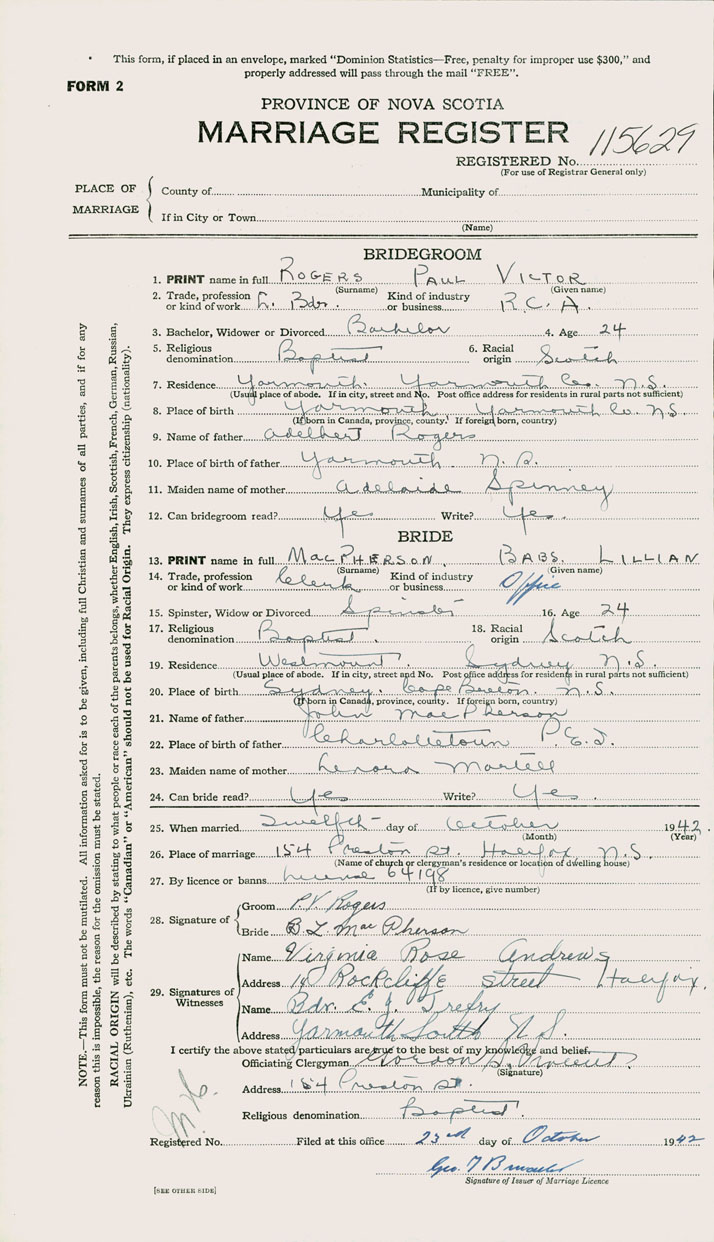 This form, if placed in an envelope, marked "Dominion Statistics—Free, penalty for improper use $300," and
properly addressed will pass through the mail "FREE".
FORM 2
PROVINCE OF NOVA SCOTIA
MARRIAGE REGISTER
REGISTERED No. 115629
(For use of Registrar General only)
PLACE OF MARRIAGE
County of Municipality of
If in City or Town
(Name)
BRIDEGROOM
1. PRINT name in full ROGERS PAUL VICTOR
(Surname) (Given name)
2. Trade, profession or kind of work L. Bdr. Kind of industry or business R.C.A.
3. Bachelor, Widower or Divorced Bachelor 4. Age 24
5. Religious denomination Baptist 6. Racial origin Scotch
7. Residence Yarmouth. Yarmouth Co. N.S.
(Usual place of abode. If in city, street and No. Post office address for residents in rural parts not sufficient)
8. Place of birth Yarmouth Yarmouth Co. N.S.
(If born in Canada, province, county. If foreign born, country)
9. Name of father Adelbert Rogers
10. Place of birth of father Yarmouth N.S.
11. Maiden name of mother Adelaide Spinney
12. Can bridegroom read? Yes Write? Yes.
BRIDE
13. PRINT name in full MACPHERSON, BABS LILLIAN
(Surname) (Given name)
14. Trade, profession or kind of work Clerk Kind of industry or business Office
15. Spinster, Widow or Divorced Spinster 16. Age 24
17. Religious denomination Baptist. 18. Racial origin Scotch
19. Residence Westmount. Sydney N.S.
(Usual place of abode. If in city, street and No. Post office address for residents in rural parts not sufficient)
20. Place of birth Sydney. Cape Breton. N.S.
(If born in Canada, province, county. If foreign born, country)
21. Name of father John MacPherson
22. Place of birth of father Charlottetown P.E.I.
23. Maiden name of mother Lenora Martell
24. Can bride read? Yes Write? Yes.
25. When married Twelfth day of October 1942.
(Month) (Year)
26. Place of marriage 154 Preston St. Halifax, N.S.
(Name of church or clergyman's residence or location of dwelling house)
27. By licence or banns License 64198
(If by licence, give number)
28. Signature of
Groom P.V. Rogers
Bride B.L. MacPherson
29. Signatures of Witnesses
Name Virginia Rose Andrews
Address 14 Rockcliffe street Halifax.
Name Bdr. E. J. Trefry
Address Yarmouth South N.S.
I certify the above stated particulars are true to the best of my knowledge and belief.
Officiating Clergyman Gordon Vincent.
(Signature)
Address 154 Preston St.
Religious denomination Baptist.
Registered No. Filed at this office 23rd day of October 1942
Geo.
Signature of Issuer of Marriage Licence
[SEE OTHER SIDE]
NOTE.—This form must not be mutilated. All information asked for is to be given, including full Christian and surnames of all parties, and if for any
reason this is impossible, the reason for the omission must be stated.
RACIAL ORIGIN will be described by stating to what people or race each of the parents belongs, whether English, Irish, Scottish, French, German, Russian,
Ukrainian (Ruthenian), etc. The words "Canadian" or "American" should not be used for Racial Origin. They express citizenship (nationality).